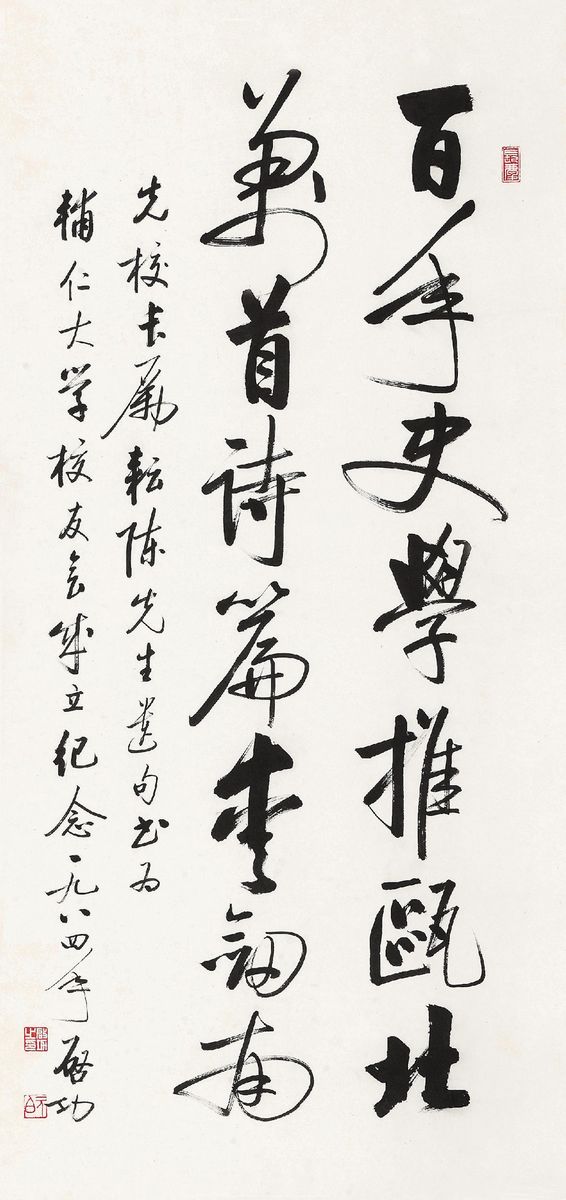 百年史學推甌北
萬首詩篇愛劍南
先校長勵耘陳先生遺句書為
輔仁大學校友會成立紀念一九八四年 啟功